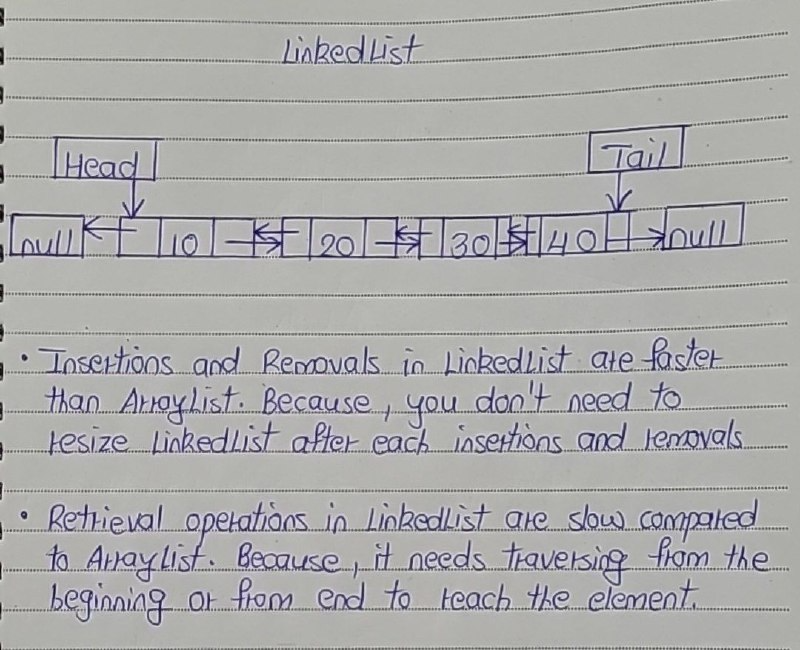 LinkedList
Head Tail
null 10 20 30 40 null
• Insertions and Removals in LinkedList are faster
than ArrayList. Because, you don't need to
resize LinkedList after each insertions and removals
• Retrieval operations in LinkedList are slow compared
to ArrayList. Because, it needs traversing from the
beginning or from end to reach the element.